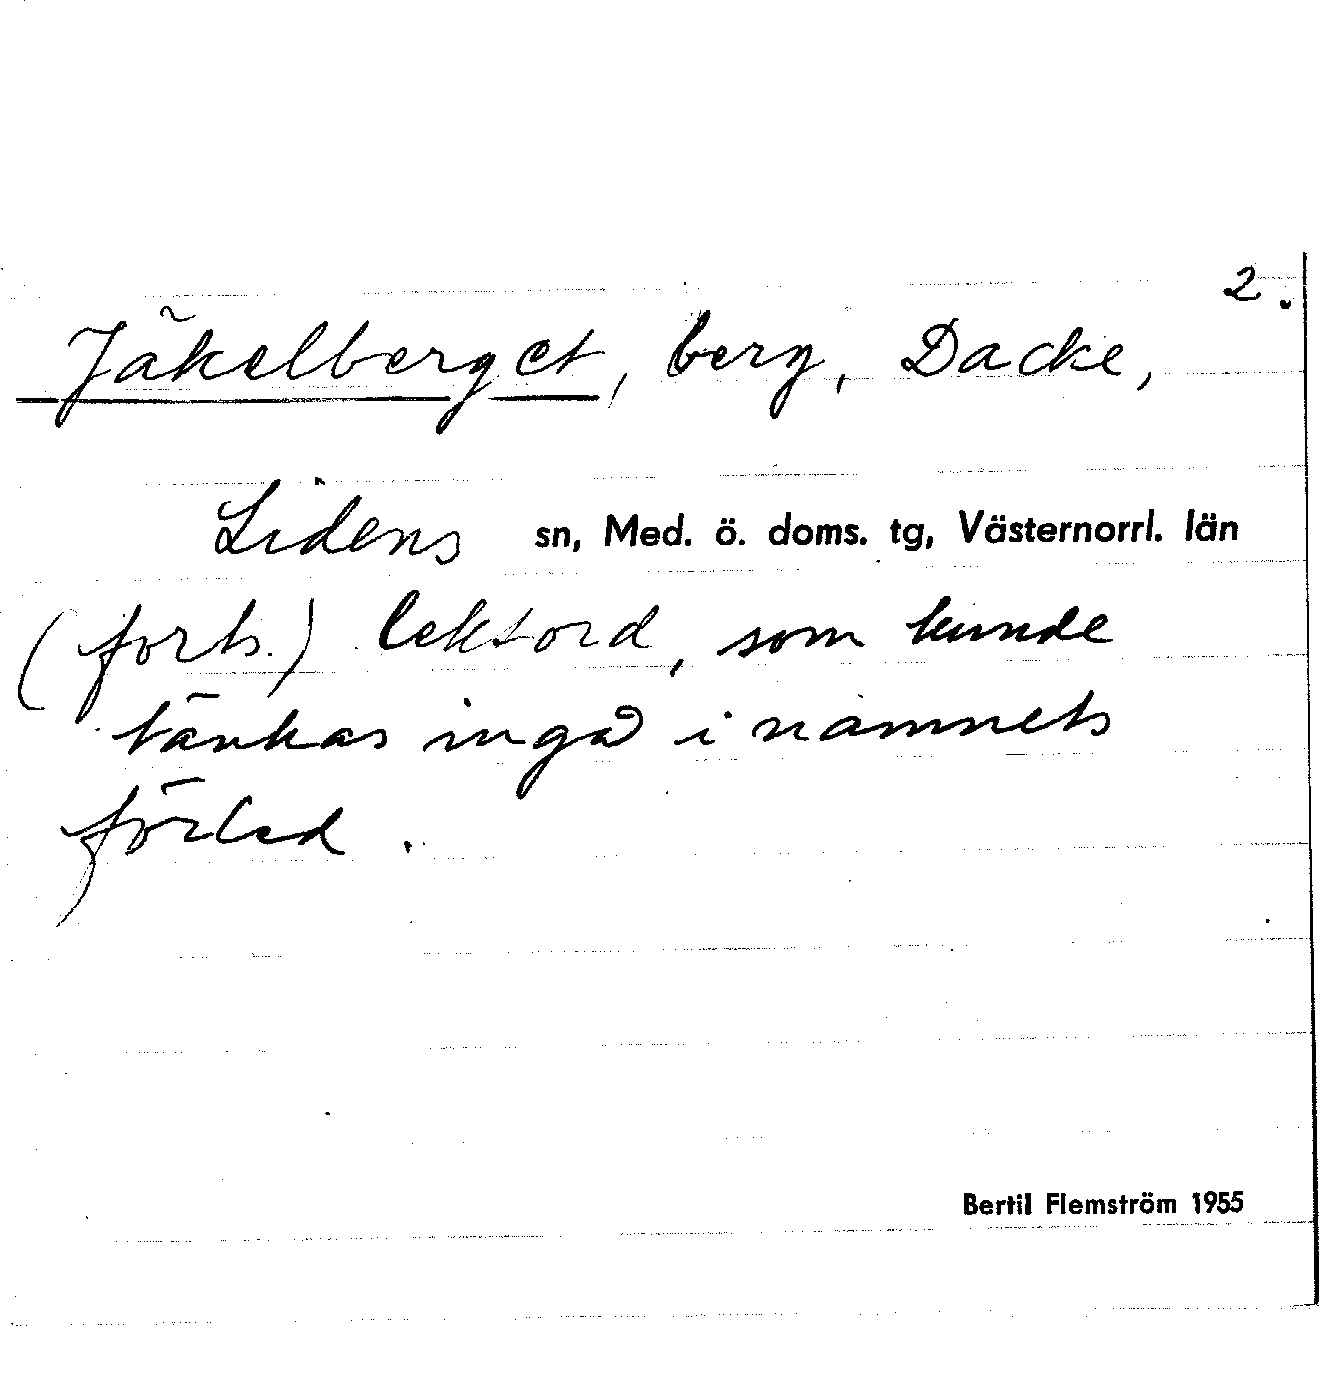 2.
Jäkelberget, berg, Dacke,
Lidens sn, Med. ö. doms. tg, Västernorrl. län
(forts.) lektord, som kunde
tänkas ingå i namnets
förled.
Bertil Flemström 1955